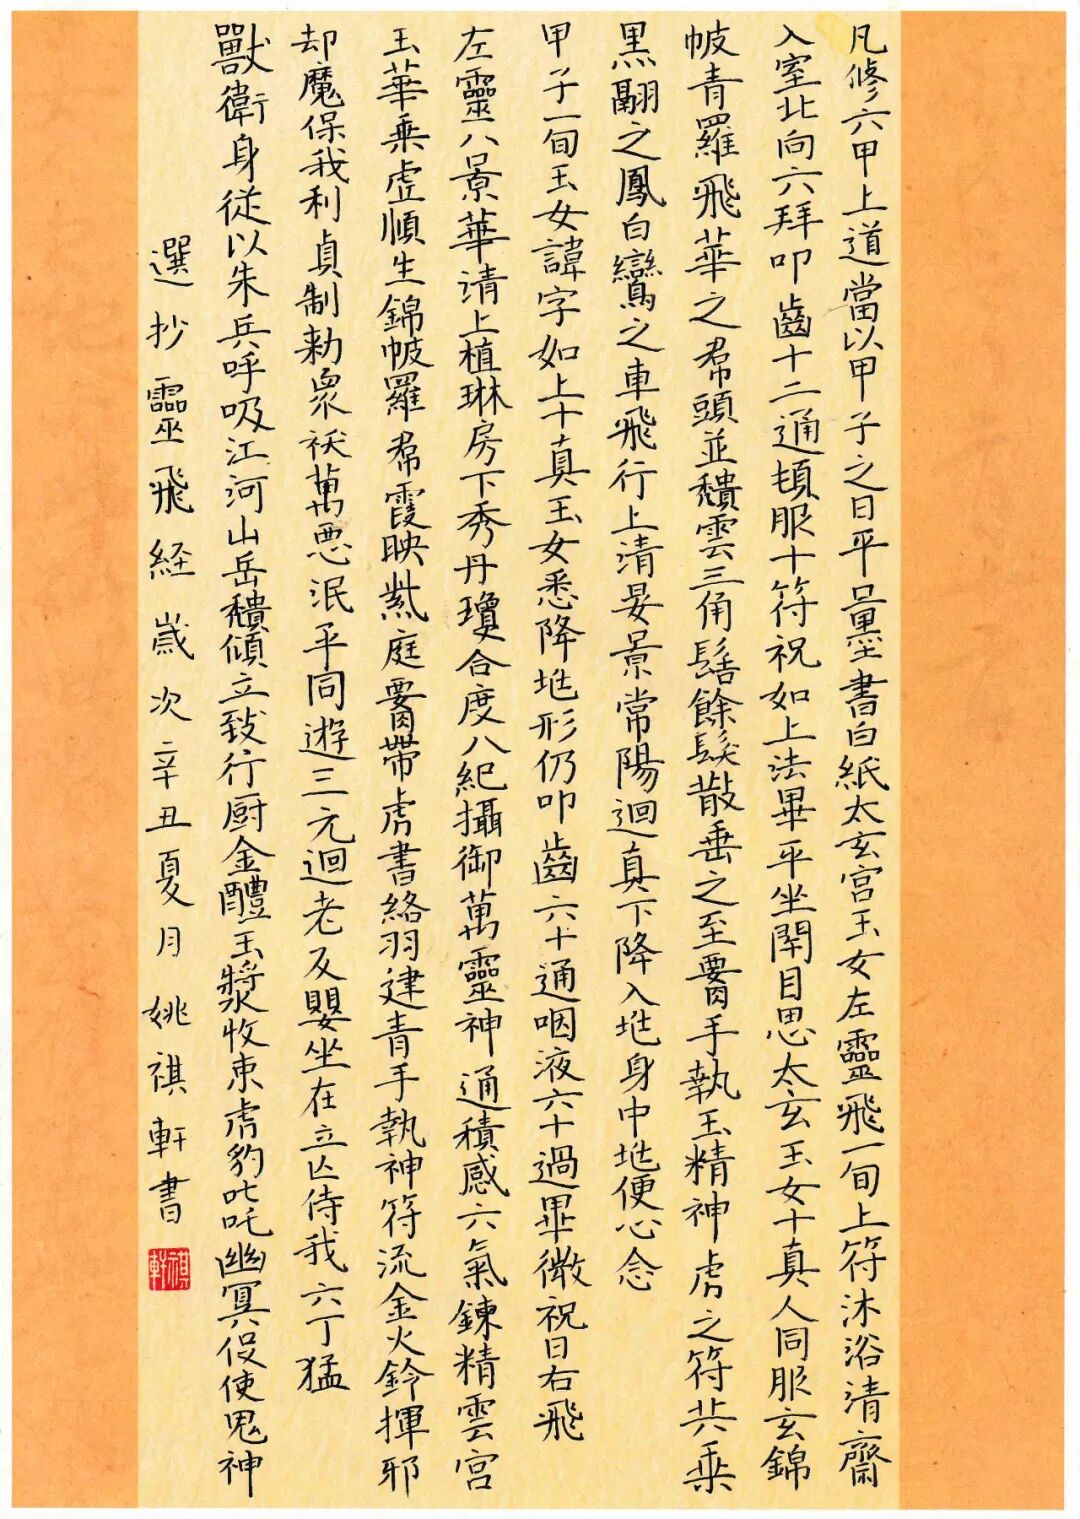 凡修六甲上道當以甲子之日平旦墨書白紙太玄宮玉女左靈飛一旬上符沐浴清齋
入室北向六拜叩齒十二通頓服十符祝如上法畢平坐閉目思太玄玉女十真人同服玄錦
帔青羅飛華之帬頭並頹雲三角髻餘髮散垂之至要手執玉精神虎之符共乘
黑翮之鳳白鸞之車飛行上清晏景常陽迴真下降入兆身中兆便心念
甲子一旬玉女諱字如上十真玉女悉降兆形仍叩齒六十通咽液六十過畢微祝曰右飛
左靈八景華清上植琳房下秀丹瓊合度八紀攝御萬靈神通積感六氣鍊精雲宮
玉華乘虛順生錦帔羅帬霞映紫庭要帶虎書絡羽建青手執神符流金火鈴揮邪
却魔保我利貞制勑眾祅萬惡泯平同遊三元迴老反嬰坐在立亡侍我六丁猛
獸衛身從以朱兵呼吸江河山岳頹傾立致行厨金醴玉漿收束虎豹叱吒幽冥役使鬼神
選抄靈飛經歲次辛丑夏月姚祺軒書
祺軒